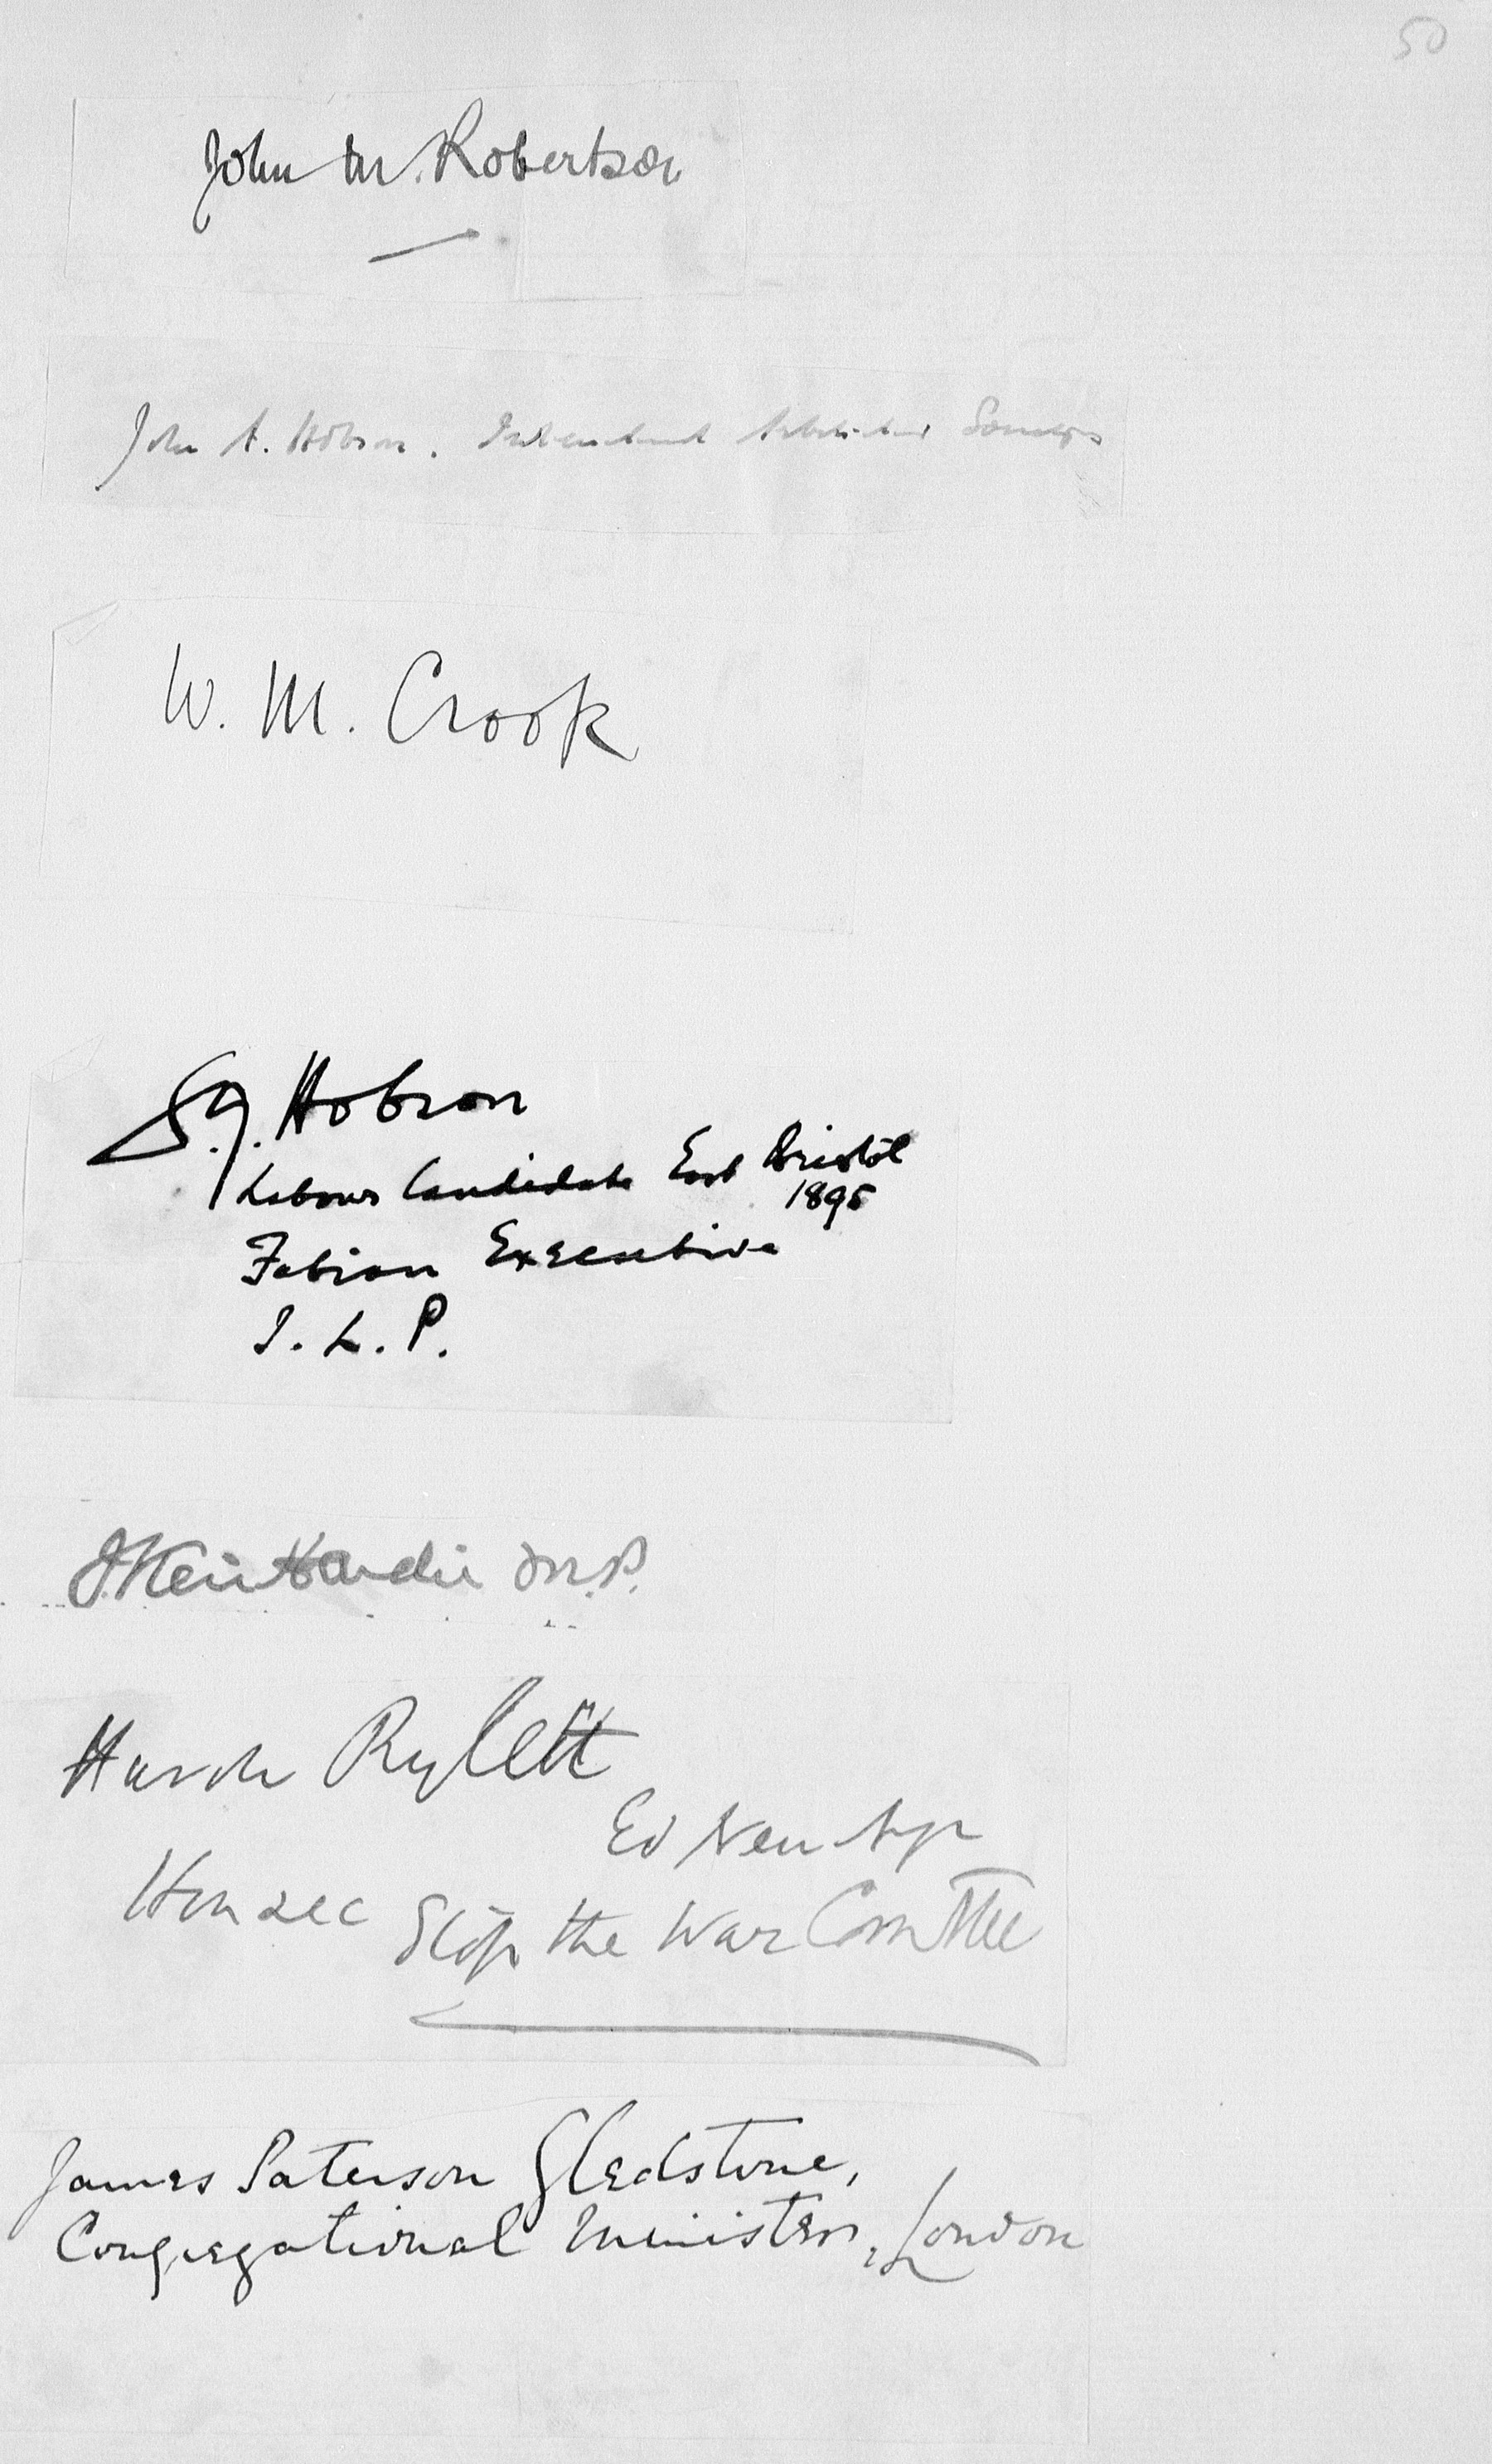 50
John M. Robertson
John A. Hobson.
W. M. Crook
S. G. Hobson
Labour Candidate East Bristol
1895
Fabian Executive
I. L. P.
J Keir Hardie M.P.
Harold Rylett
Ed New Age
Hon Sec Stop the War Comttee
James Paterson Gledstone,
Congregational Minister, London